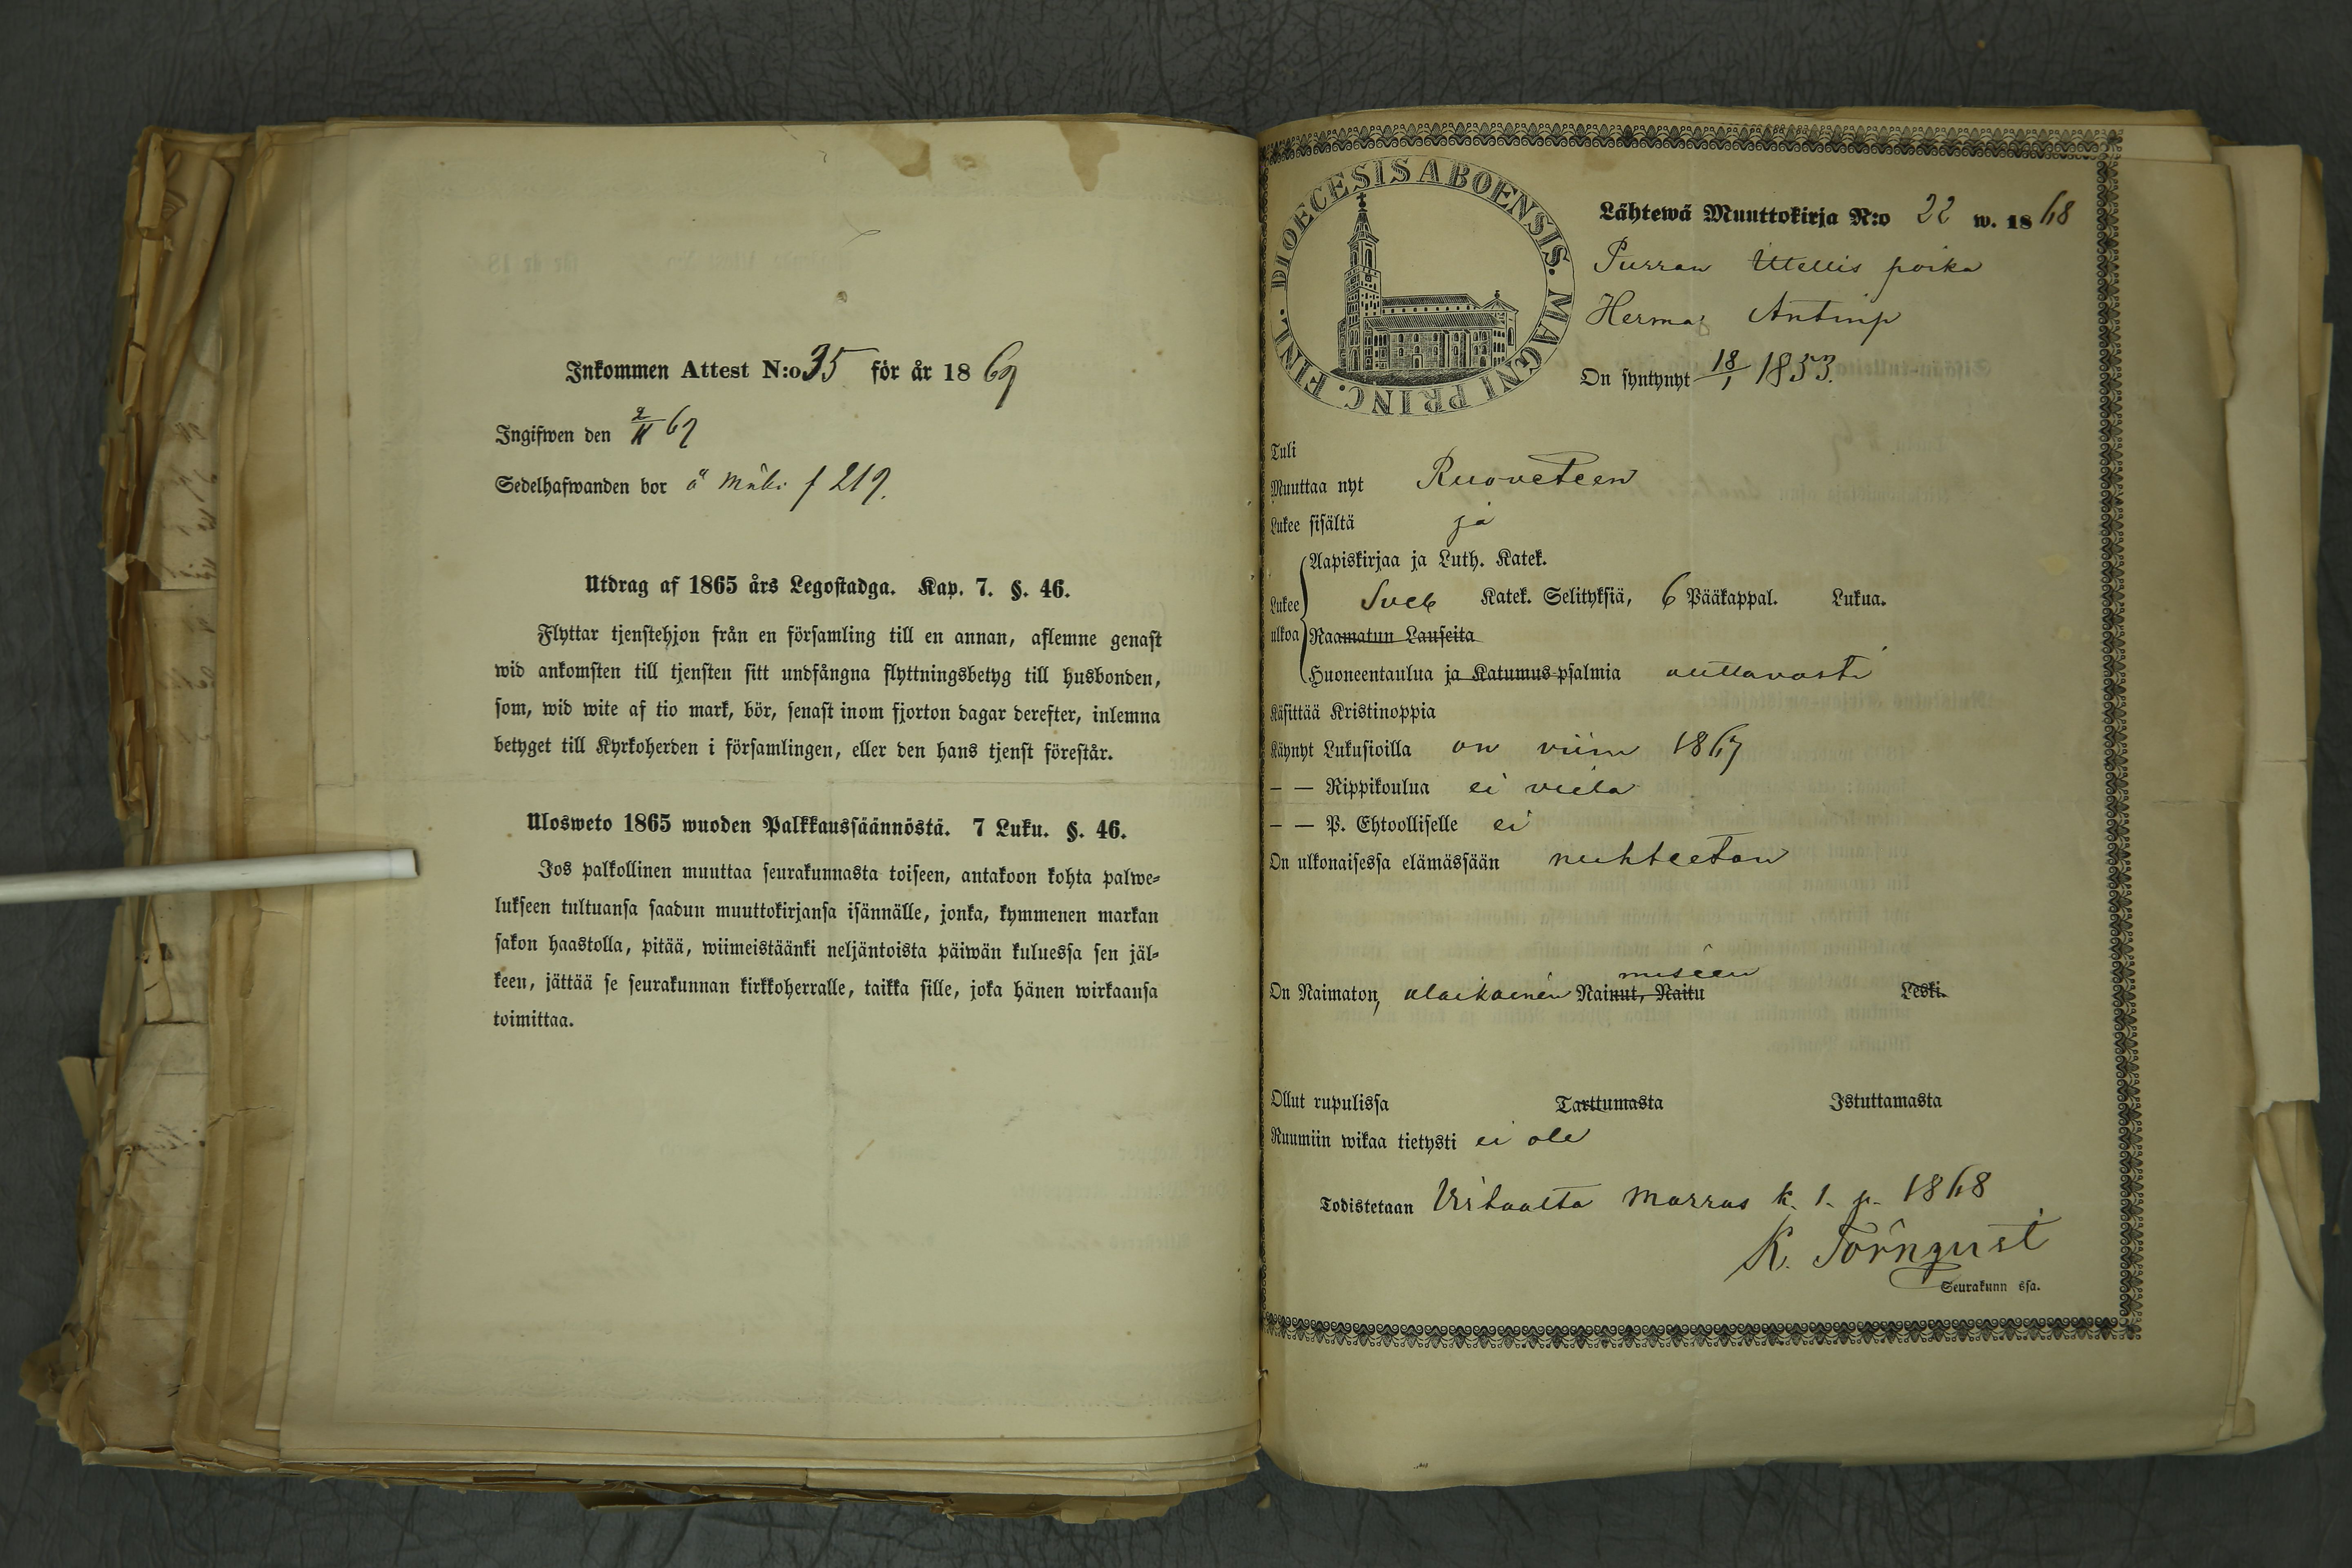 Inkommen Attest N:o 35 för år 1869
Ingifwen den 2/11 69
Sedelhafwanden bor å Mäki f 219.
Utdrag af 1865 års Legostadga. Kap. 7. §. 46.
Flyttar tjenstehjon från en församling till en annan, aflemne genast
wid ankomsten till tjensten sitt undfångna flyttningsbetyg till husbonden,
som, wid wite af tio mark, bör, senast inom fjorton dagar derefter, inlemna
betyget till Kyrkoherden i församlingen, eller den hans tjenst förestår.
Ulosweto 1865 wuoden Palkkaussäännöstä. 7 Luku. §. 46.
Jos palkollinen muuttaa seurakunnasta toiseen, antakoon kohta palwe-
lukseen tultuansa saadun muuttokirjansa isännälle, jonka, kymmenen markan
sakon haastolla, pitää, wiimeistäänki neljäntoista päiwän kuluessa sen jäl-
keen, jättää se seurakunnan kirkkoherralle, taikka sille, joka hänen wirkaansa
toimittaa.
FINL. DIOECESIS ABOENSIS. MAGNI PRINC.
Lähtewä Muuttokirja N:o 22 w. 1868
Purran Itellis poika
Herma Antinp
On syntynyt 18/1 1853.
Tuli
Muuttaa nyt Ruoveteen
Lukee sisältä ja
Aapiskirjaa ja Luth. Katek.
Lukee Sveb Katek. Selityksiä, 6 Pääkappal. Lukua.
ulkoa Raamatun Lauseita
Huoneentaulua ja Katumus-psalmia auttavasti
Käsittää Kristinoppia
Käynyt Lukusioilla on viim 1867
— — Rippikoulua ei vielä
— — P. Ehtoolliselle ei
On ulkonaisessa elämässään nuhteeton
On Naimaton, alaikäinen Nainut, Naitu Leski.
Ollut rupulissa Tarttumasta Istuttamasta
Ruumiin wikaa tietysti ei ole
Todistetaan Virtaalta Marras k. 1. p. 1868
K. Törnqvist
Seurakunn ssa.